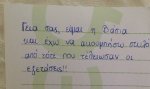 Γεια σας, είμαι η Βάσια
και έχω να ακουμπήσω στυλό
από τότε που τέλειωσαν οι
εξετάσεις!!